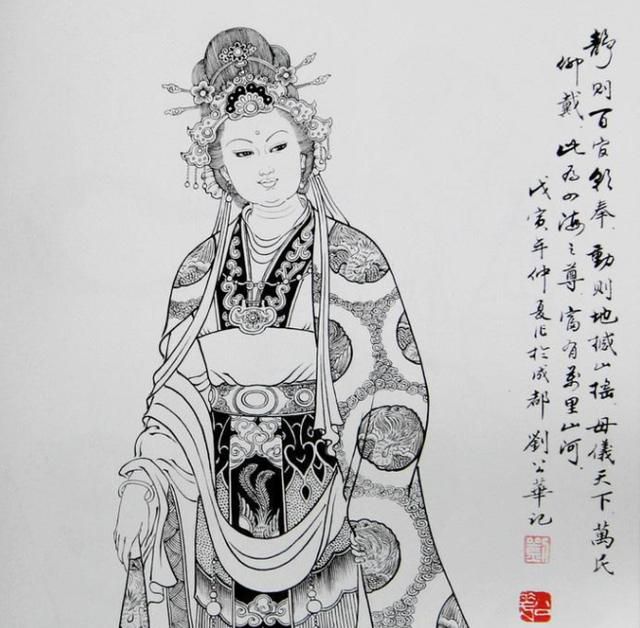 静则百官朝奉、動则地撼山摇、母儀天下萬民
仰戴、此为四海之尊、富有萬里山河、
戊寅年仲夏作於成都 劉公華记